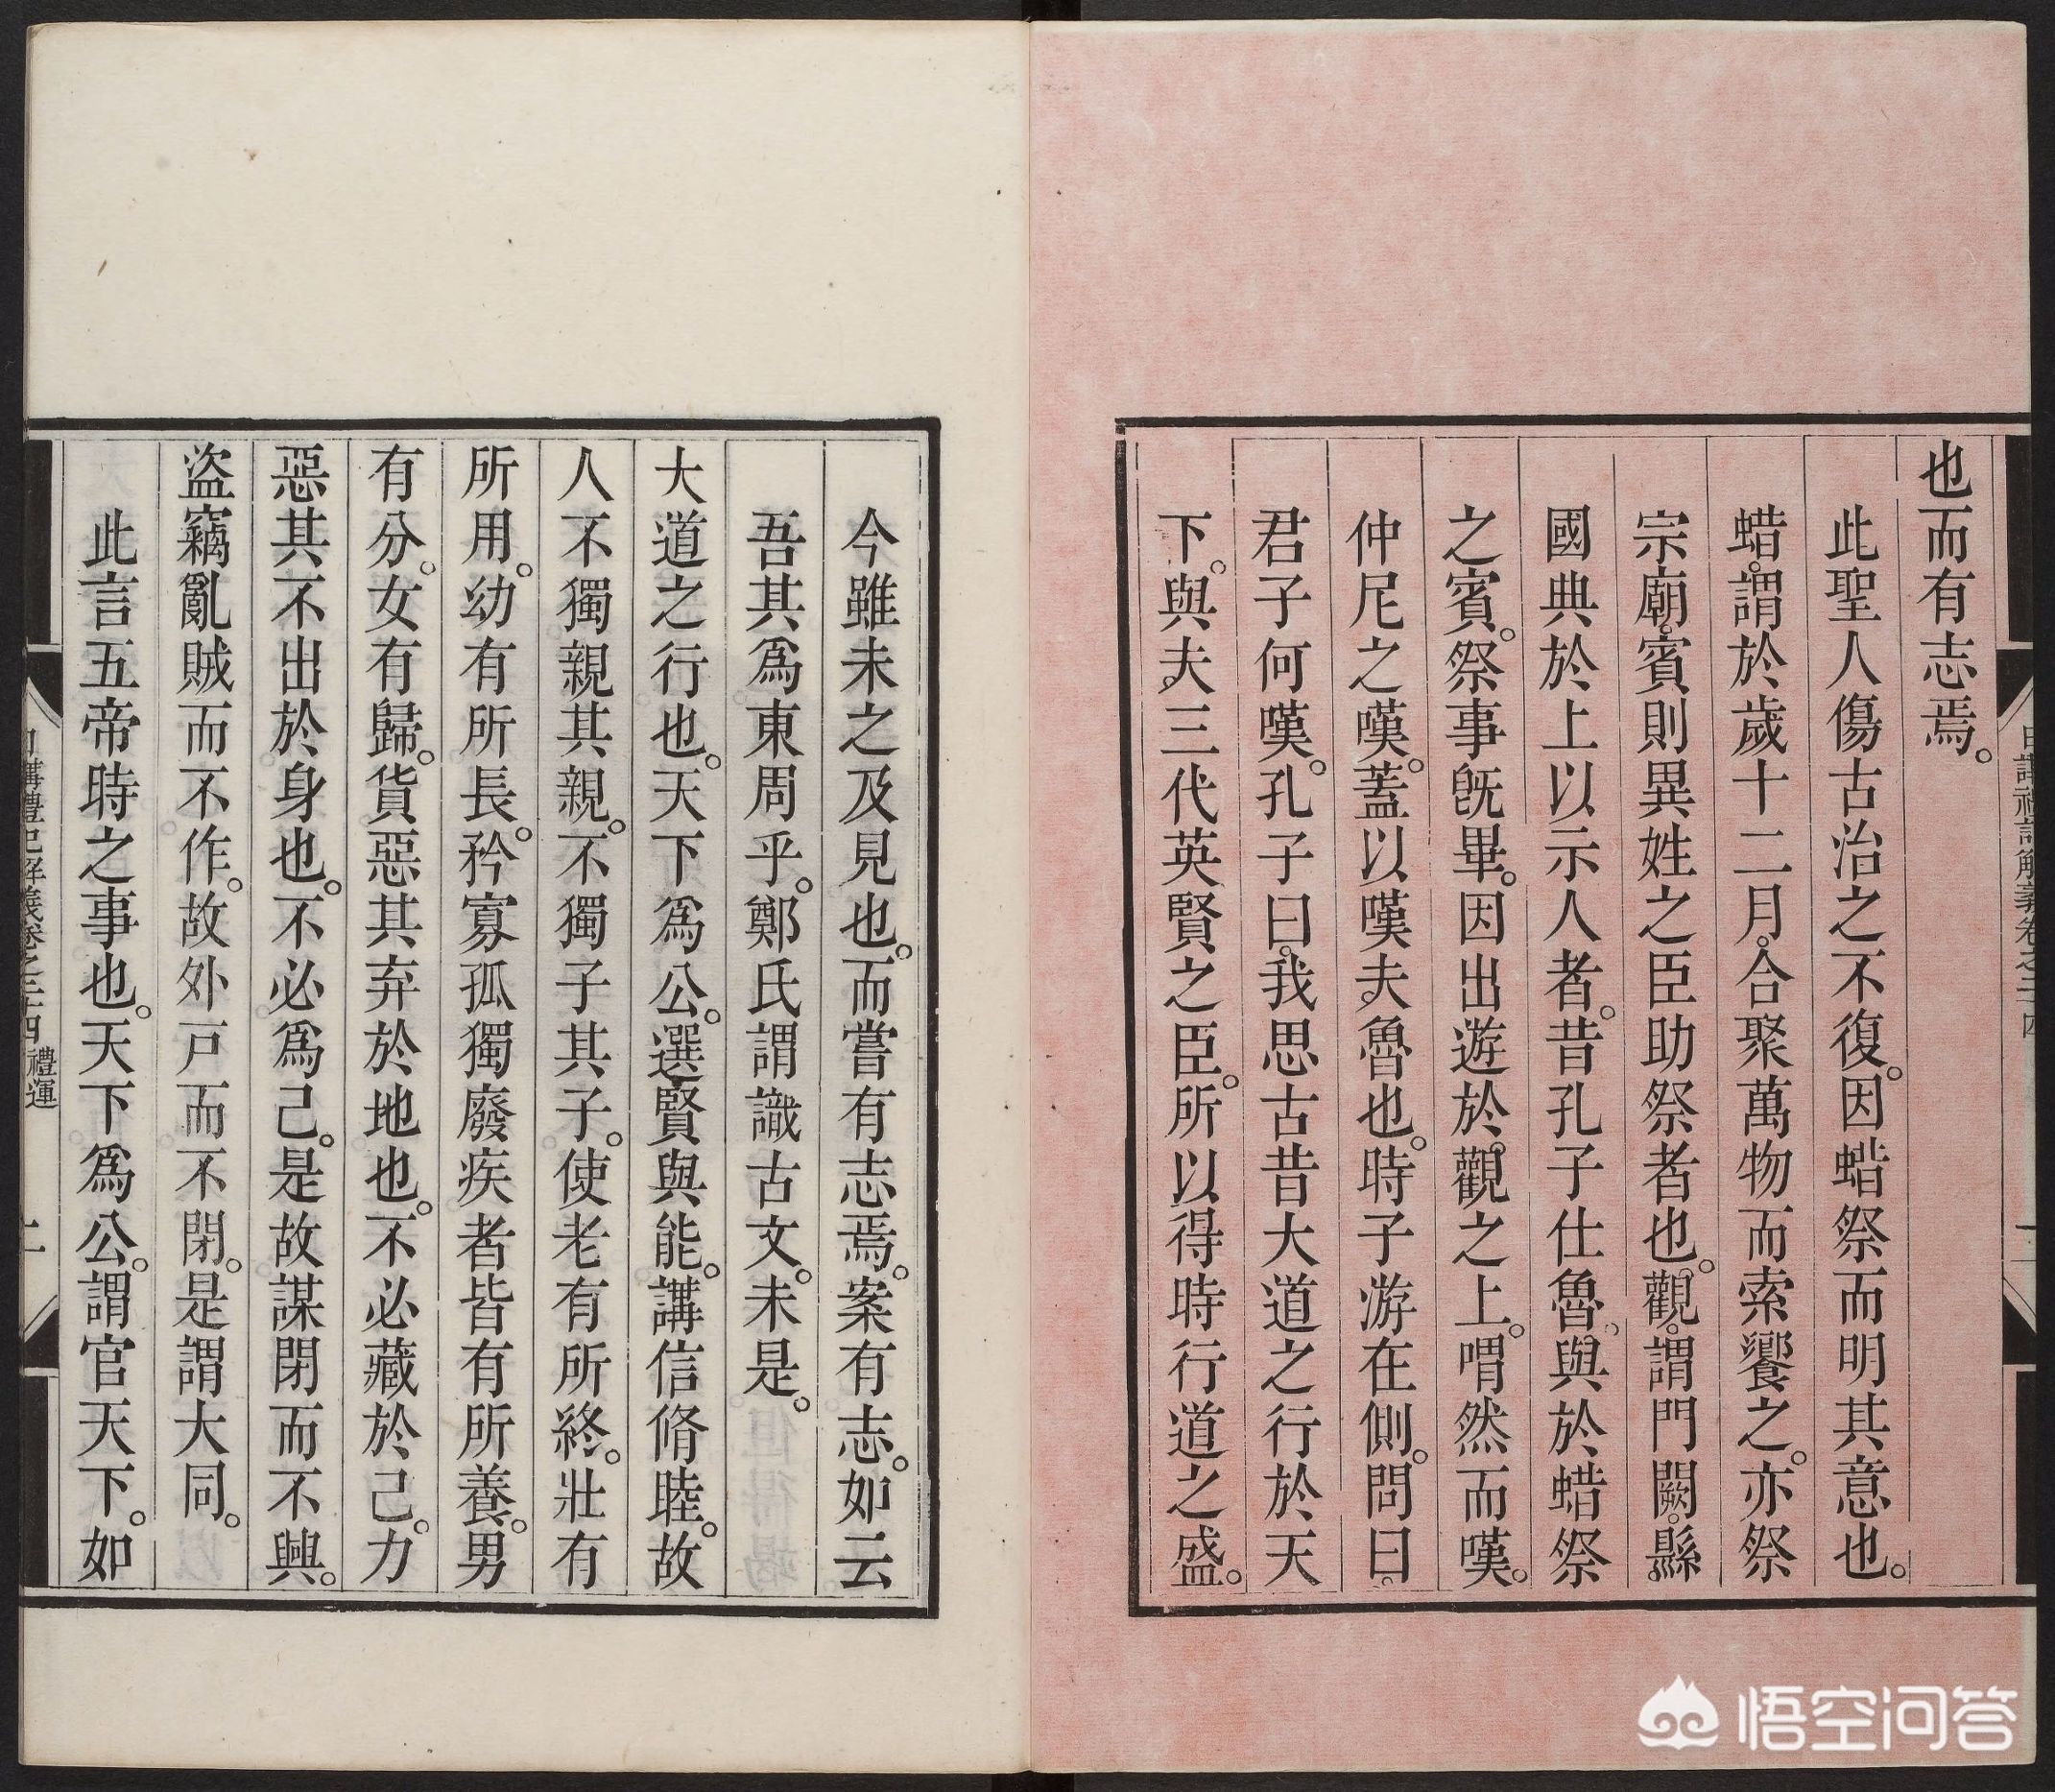 也而有志焉。
此聖人傷古治之不復。因蜡祭而明其意也。
蜡。謂於歲十二月。合聚萬物而索饗之。亦祭
宗廟。賓則異姓之臣助祭者也。觀。謂門闕。縣
國典於上以示人者。昔孔子仕魯。與於蜡祭
之賓。祭事旣畢。因出遊於。觀之上。喟然而嘆。
仲尼之嘆。蓋以嘆夫魯也。時子游在側。問曰。
君子何嘆。孔子曰。我思古昔大道之行於天
下。與夫三代英賢之臣。所以得時行道之盛。
今雖未之及見也。而嘗有志焉。案有志。如云
吾其爲東周乎。鄭氏謂識古文。未是。
大道之行也。天下爲公。選賢與能。講信脩睦。故
人不獨親其親。不獨子其子。使老有所終。壯有
所用。幼有所長。矜寡孤獨廢疾者皆有所養。男
有分。女有歸。貨惡其弃於地也。不必藏於己。力
惡其不出於身也。不必爲己。是故謀閉而不興。
盜竊亂賊而不作。故外戶而不閉。是謂大同。
此言五帝時之事也。天下爲公。謂官天下。如
日講禮記解義卷之二十四
禮運
悟空问答